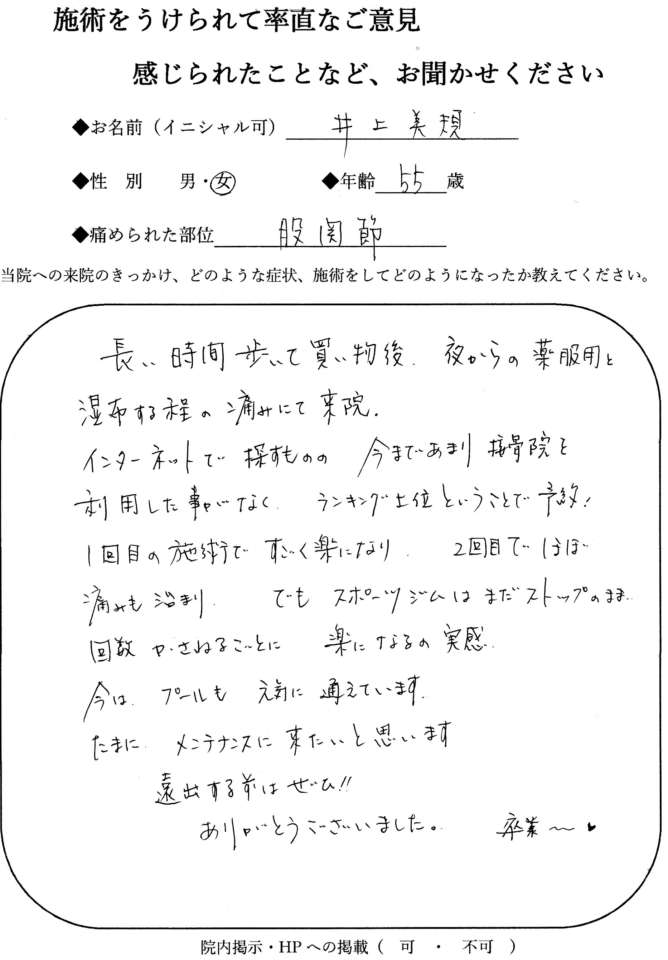 施術をうけられて率直なご意見
感じられたことなど、お聞かせください
◆お名前（イニシャル可） 井上美規
◆性　別　　男・女　　◆年齢 55 歳
◆痛められた部位 股関節
当院への来院のきっかけ、どのような症状、施術をしてどのようになったか教えてください。
長い時間歩いて買い物後、夜からの薬服用と
湿布する程の痛みにて来院.
インターネットで探すものの 今まであまり接骨院を
利用した事がなく ランキング上位ということで予約!
1回目の施術ですごく楽になり. 2回目でほぼ
痛みも治まり. でもスポーツジムはまだストップのまま..
回数かさねるごとに 楽になるの実感.
今は、プールも 元気に通えています.
たまに メンテナンスに来たいと思います
遠出する前はぜひ!!
ありがとうございました。 卒業〜♥
院内掲示・HPへの掲載（　可　・　不可　）